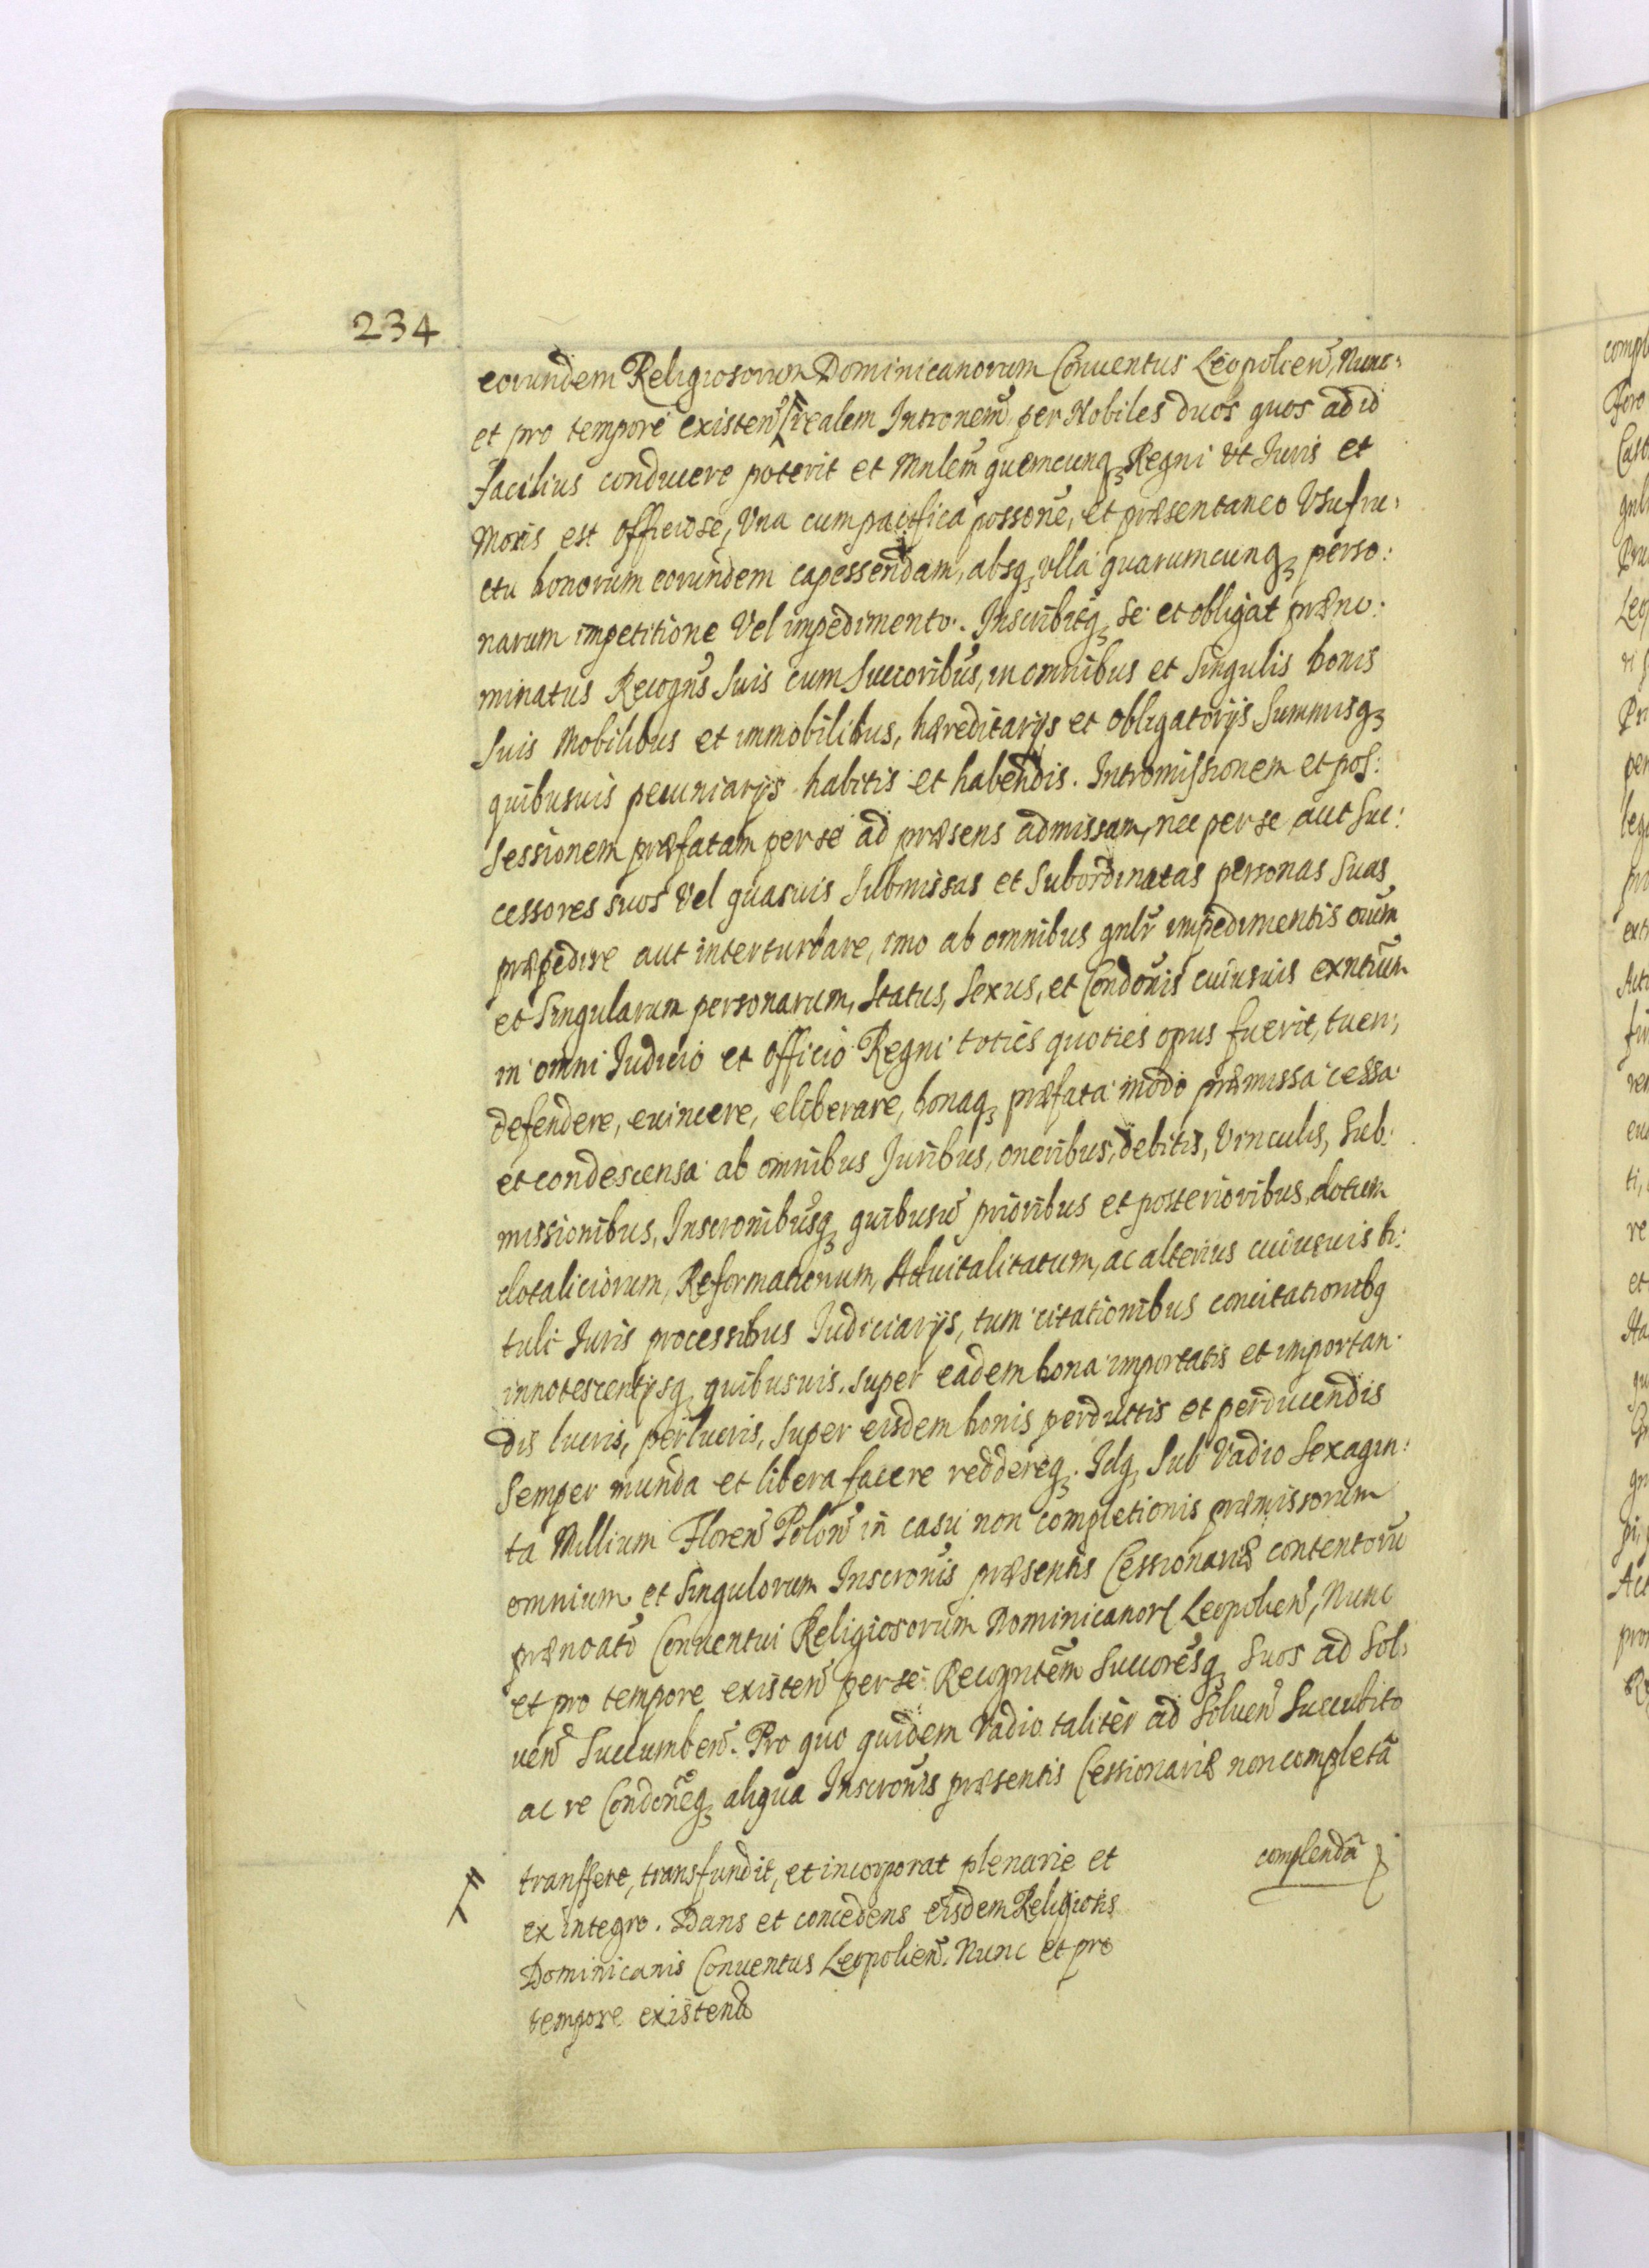 234
eorundem Religiosorum Dominicanorum Conuentus Leopolien̄, Nunc
et pro tempore existen̄ realem Intronem̄ per Nobiles duos quos ad id
facilius conducere poterit et Mnlem̄ quemcunqꝫ Regni ut Iuris et
Moris est officiose, Vna cum pacifica possone, et præsentaneo Vsufru:
ctu bonorum eorundem capessendam, absqꝫ ulla quarumcunqꝫ perso:
narum impetitione Vel impedimento. Inscribitqꝫ se et obligat præno:
minatus Recogn̄s Suis cum Succoribus, in omnibus et Singulis bonis
Suis Mobilibus et immobilibus, hæreditarijs et obligatorijs Summisqꝫ
quibusuis pecuniarijs habitis et habendis. Intromissionem et pos:
sessionem præfatam per se ad præsens admissam, nec per se aut Suc:
cessores suos Vel quasuis Submissas et Subordinatas personas Suas
præpedire aut interturbare, imo ab omnibus gnlr̄ impedimentis oum̄
et Singularum personarum, Status, Sexus, et Condonis cuiusuis exntium̄
in omni Iudicio et officio Regni toties quoties opus fuerit, tueri,
defendere, euincere, eliberare, bonaqꝫ præfata modo præmissa cessa
et condescensa ab omnibus Iuribus, oneribus, debitis, Vinculis, Sub:
missionibus, Inscronibusqꝫ quibusuis prioribus et posterioribus, dotum
dotaliciorum, Reformationum, Aduitalitatum, ac alterius cuiusuis ti:
tuli Iuris processibus Iudiciarijs, tum citationibus concitationibq
innotescentijsqꝫ quibusuis. super eadem bona importatis et importan:
dis lucris, perlucris, super eisdem bonis perductis et perducendis
Semper munda et libera facere reddereqꝫ. Idqꝫ Sub Vadio Sexagin:
ta Millium Floren̄ Polon̄ in casu non completionis præmissorum
omnium et Singulorum Inscronis præsentis Cessionariæ contentoru
prænoato Conuentui Religiosorum Dominicanor Leopolien̄, Nunc
et pro tempore existen̄ per se Recogntem̄ Succoresqꝫ Suos ad Sol:
uen̄ Succumben̄. Pro quo quidem Vadio taliter ad Soluen̄ Succubito
ac re Condoneqꝫ aliqua Inscronis præsentis Cessionariæ non completā
complendā
transfert, transfundit, et incorporat plenarie et
ex integro. Dans et concedens eisdem Religiosis
Dominicanis Conuentus Leopolien̄. Nunc et pro
tempore existen̄